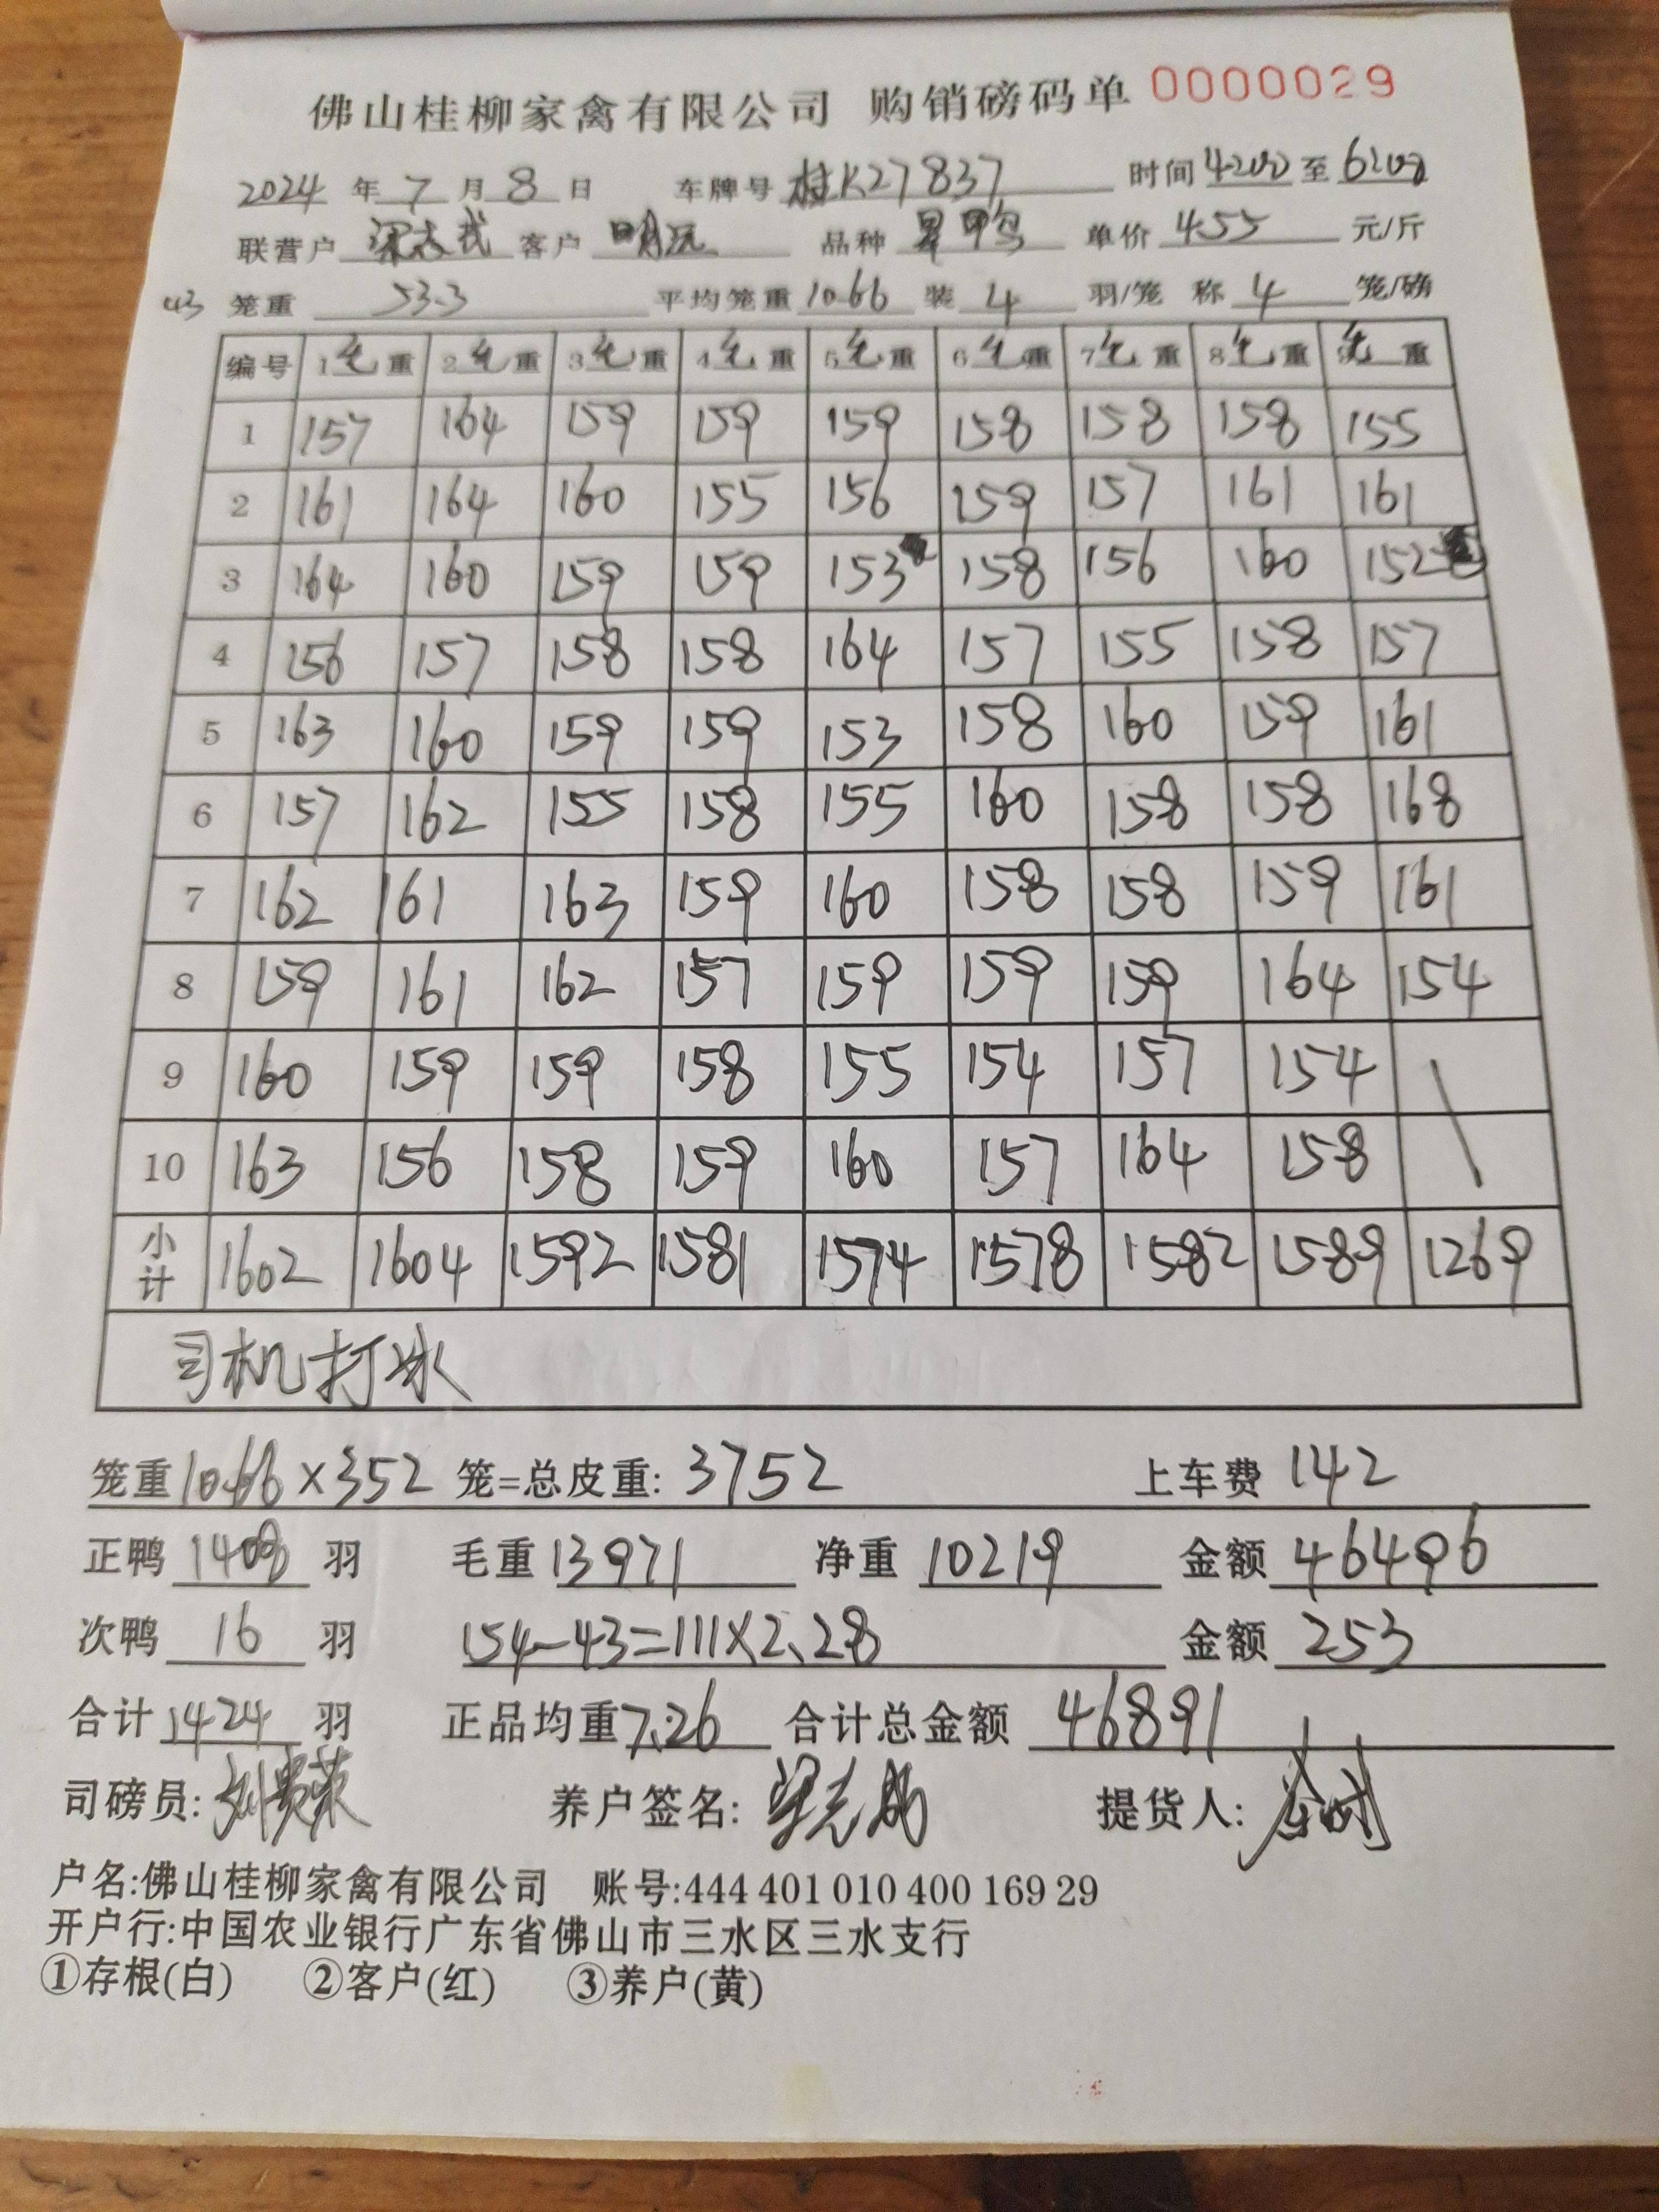 佛山桂柳家禽有限公司 购销磅码单 0000029
2024 年 7 月 8 日 车牌号 桂K27837 时间 4:00 至 6:00
联营户 客户 明远 品种 单价 4.55 元/斤
43 笼重 53.3 平均笼重 10.66 装 4 羽/笼 称 4 笼/磅
编号 1毛重 2毛重 3毛重 4毛重 5毛重 6毛重 7毛重 8毛重 9毛重
1 157 164 159 159 159 158 158 158 155
2 161 164 160 155 156 159 157 161 161
3 164 160 159 159 153 158 156 160 152
4 156 157 158 158 164 157 155 158 157
5 163 160 159 159 153 158 160 159 161
6 157 162 155 158 155 160 158 158 168
7 162 161 163 159 160 158 158 159 161
8 159 161 162 157 159 159 159 164 154
9 160 159 159 158 155 154 157 154
10 163 156 158 159 160 157 164 158
小计 1602 1604 1592 1581 1574 1578 1582 1589 1269
司机打冰
笼重 10.66 × 352 笼=总皮重: 3752 上车费 142
正鸭 1408 羽 毛重 13971 净重 10219 金额 46496
次鸭 16 羽 154-43=111×2.28 金额 253
合计 1424 羽 正品均重 7.26 合计总金额 46891
司磅员: 养户签名: 提货人:
户名:佛山桂柳家禽有限公司 账号:444 401 010 400 169 29
开户行:中国农业银行广东省佛山市三水区三水支行
①存根(白) ②客户(红) ③养户(黄)